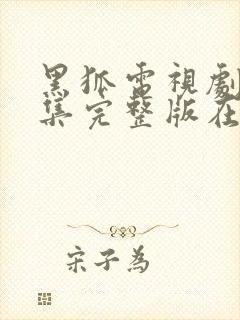 黑狐電視劇
集完整版在
宋子為